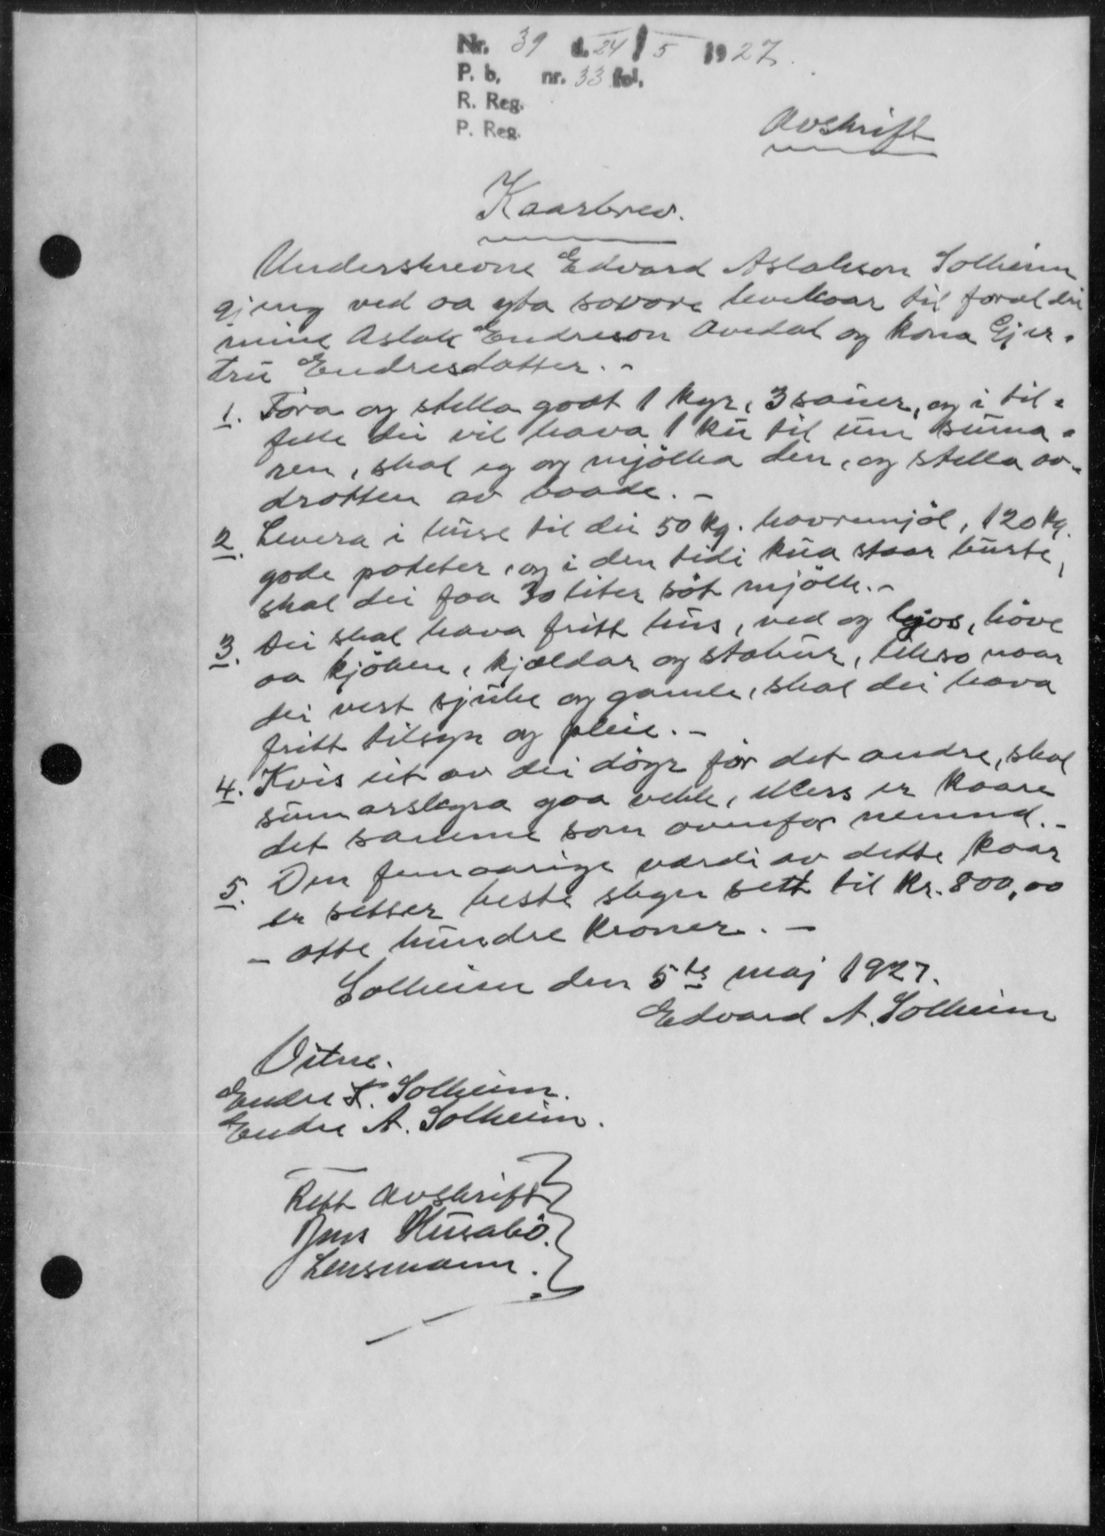 Nr. 39 d. 24/5 1927.
P. b. nr. 33 fol.
R. Reg.
P. Reg.
Avskrift
Kaarbrev.
Underskrevne Edvard Aslakson Solheim
gjeng ved aa yta sovore levekaar til foreldri
mine Aslak Endreson Avedal og kona Gjer-
tru Endresdatter. -
1. Fora og stella godt 1 kyr, 3 sauer, og i til-
felle dei vil hava 1 ku til um suma-
ren, skal eg og mjölka den, og stella av-
drotten av baade. -
2. Levera i huse til dei 50 kg. havremjöl, 120 kg.
gode poteter, og i den tidi kua staar turste,
skal dei faa 30 liter söt mjölk. -
3. Dei skal hava fritt hus, ved og ljos, höve
aa kjöken, kjældar og stabur, likso naar
dei vert sjuke og gamle, skal dei hava
fritt tilsyn og pleie. -
4. Kvis eit av dei döyr för det andre, skal
sumarslegra gaa vekk, ellers er kaare
det samme som ovenfor nemnd. -
5. Den femaarige værdi av dette kaar
er setter beste skyn sett til Kr. 800,00
- otte hundre kroner. -
Solheim den 5te maj 1927.
Edvard A. Solheim
Vitne.
Endre T. Solheim.
Endre A. Solheim.
Rett Avskrift
Jens Husabö.
Lensmann.